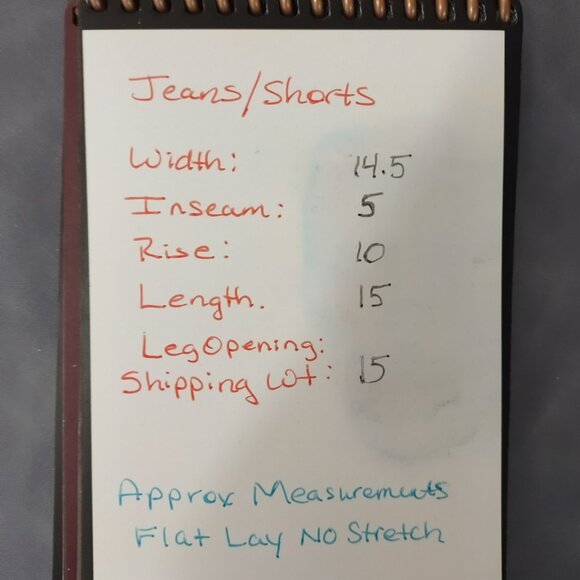 Jeans/Shorts
Width: 14.5
Inseam: 5
Rise: 10
Length. 15
Leg Opening:
Shipping Wt: 15
Approx Measurements
Flat Lay No Stretch